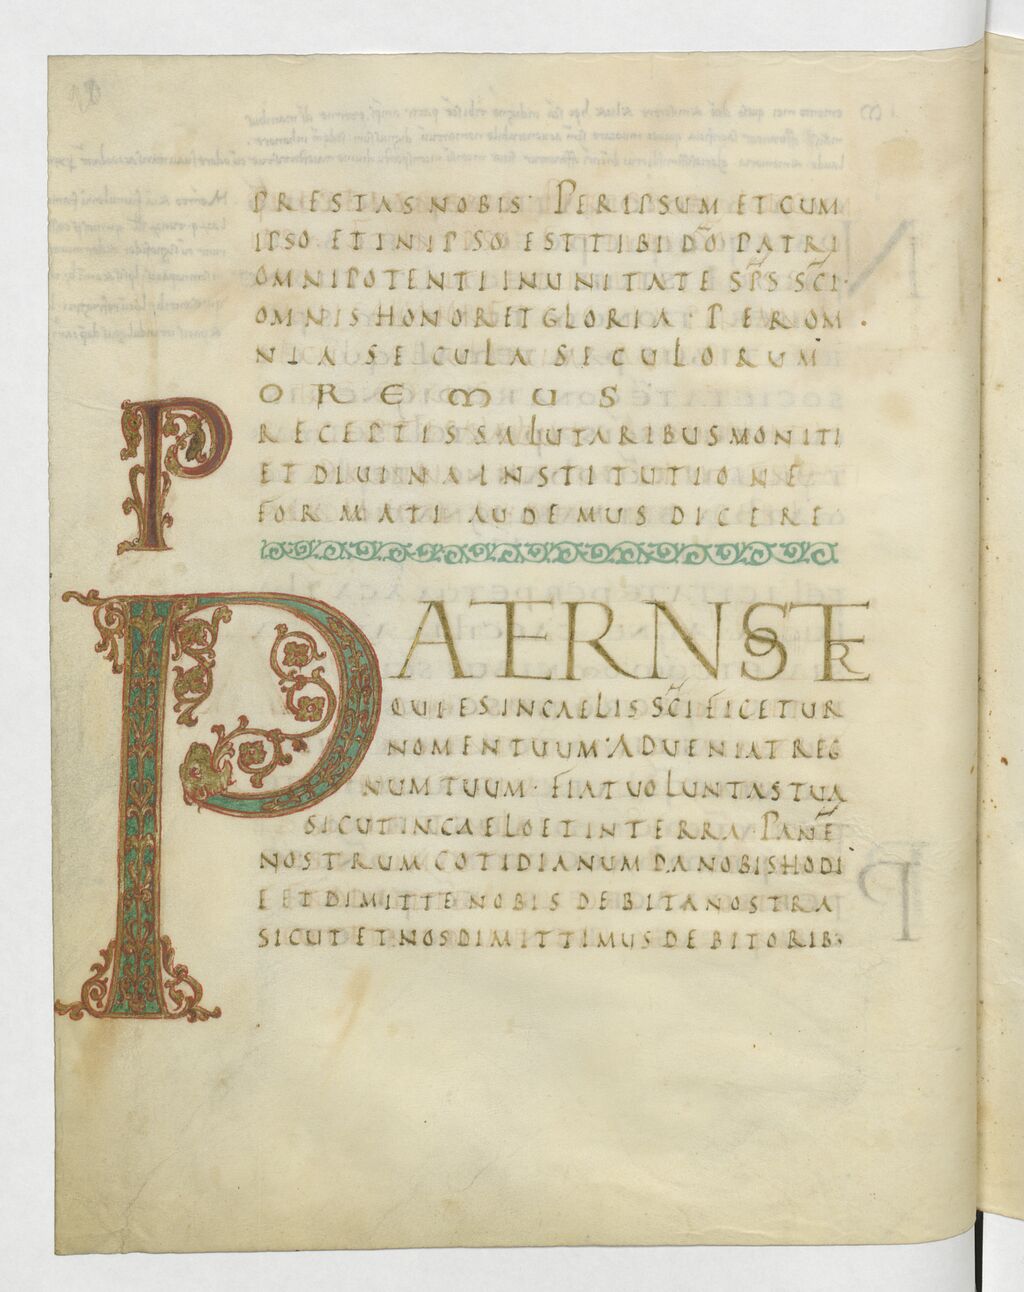 PRESTAS NOBIS · PER IPSUM ET CUM
IPSO · ET IN IPSO EST TIBI DŌ PATRI
OMNIPOTENTI IN UNITATE SP̄S SC̄I ·
OMNIS HONOR ET GLORIA · PER OM
NIA SECULA SECULORUM
OREMUS
PRECEPTIS SALUTARIBUS MONITI
ET DIUINA INSTITUTIONE
FORMATI AUDEMUS DICERE
PATER NOSTER
QUI ES IN CAELIS SC̄IFICETUR
NOMEN TUUM · ADUENIAT REG
NUM TUUM · FIAT UOLUNTAS TUA
SICUT IN CAELO ET IN TERRA · PANĒ
NOSTRUM COTIDIANUM DA NOBIS HODI
E ET DIMITTE NOBIS DEBITA NOSTRA
SICUT ET NOS DIMITTIMUS DEBITORIB;